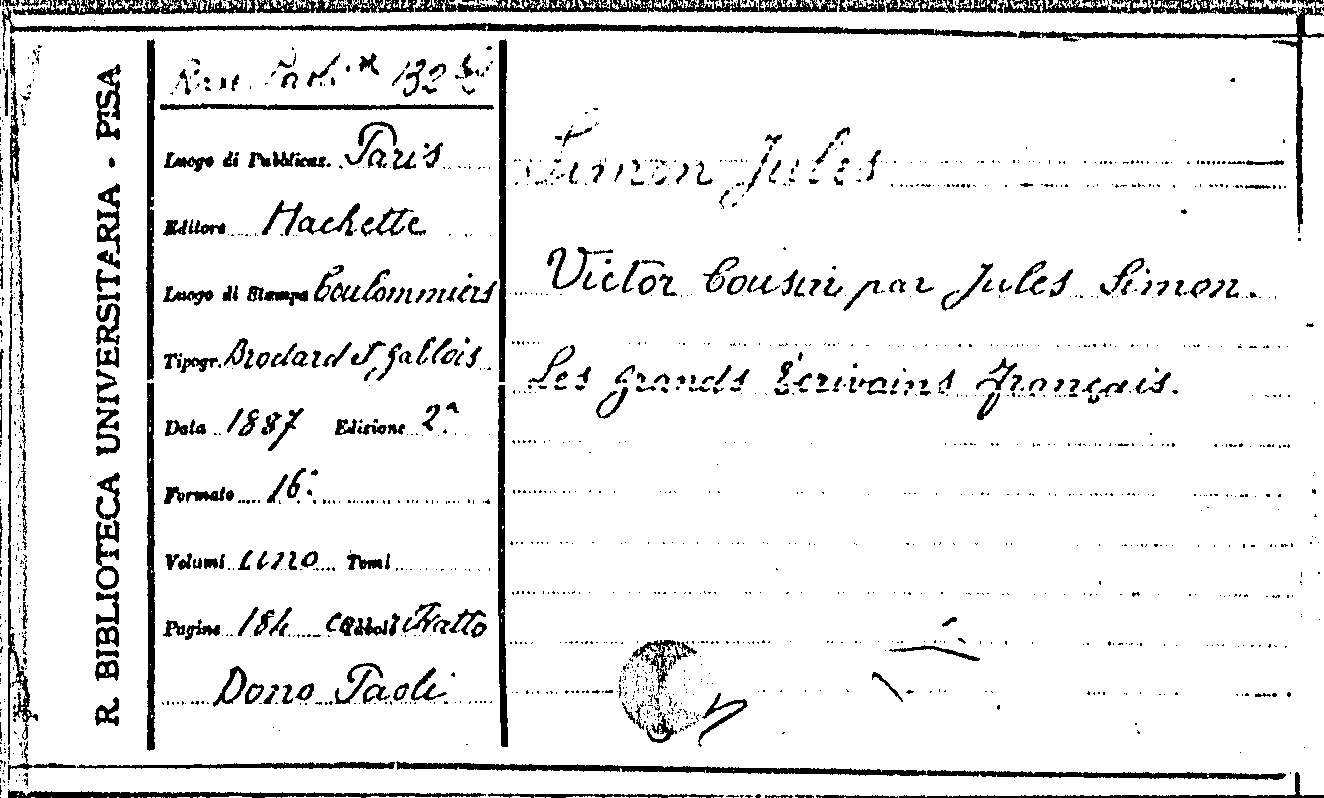 R. BIBLIOTECA UNIVERSITARIA - PISA
Paoli 132
Luogo di Pubblicaz. Paris
Editore Hachette
Luogo di Stampa Coulommiers
Tipogr. Brodard & Gallois
Data 1887 Edizione 2ª
Formato 16°
Volumi uno Tomi
Pagine 184 con ritratto
Dono Paoli
Simon Jules
Victor Cousin par Jules Simon.
Les grands Écrivains français.